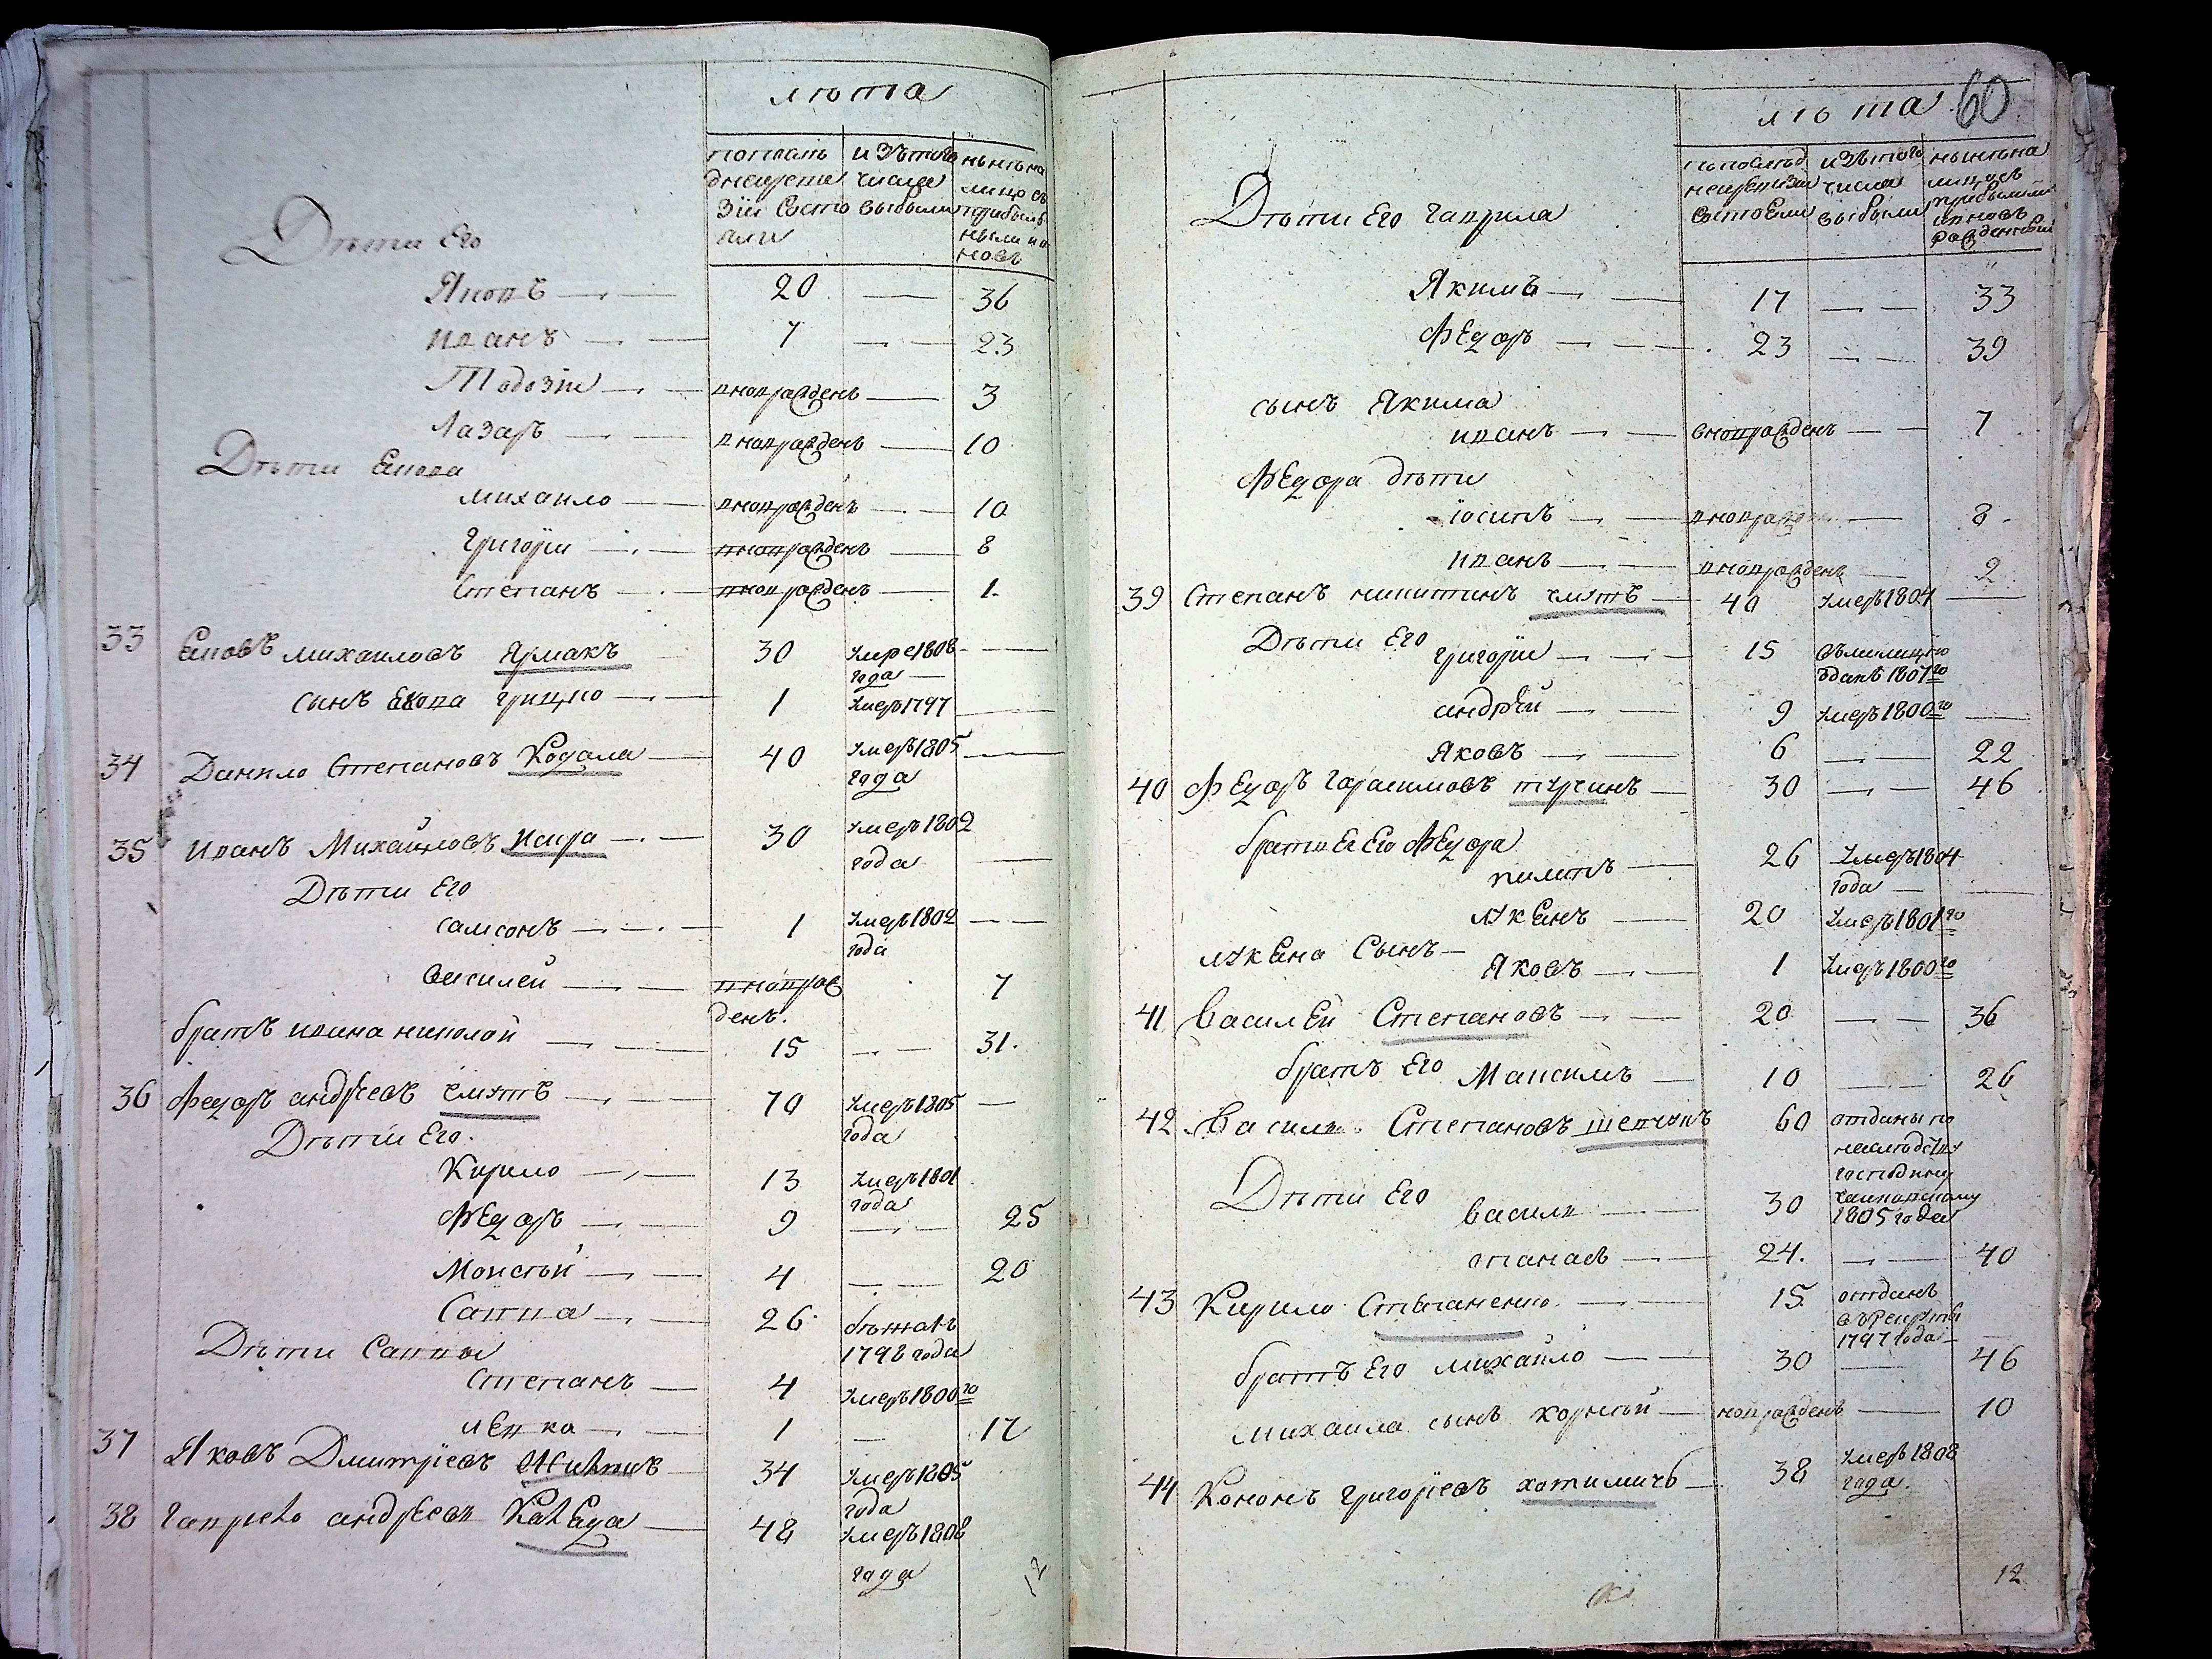 лѣта
попослѣ
днейреви
зіи состо
яли
изътого
числа
выбыли
нынѣна
лицо съ
прибылы
ными и в
новь
Дѣти Его
Яковъ 20 36
иванъ 7 23
Тадозіи вновьрожденъ 3
Лазаръ вновьрожденъ 10
Дѣти Якова
михаило вновьрожденъ 10
григорїи вновьрожденъ 8
Степанъ вновьрожденъ 1
33 михаиловъ Ярмакъ 30 умре 1808
года
сынъ грицко 1 умеръ 1797
34 Данило Степановъ Кодала 40 умеръ 1805
года
35 иванъ Михайловъ 30 умеръ 1802
года
Дѣти Его
самсонъ 1 умеръ 1802
года
василей вновьрож
денъ. 7
братъ ивана николай 15 31.
36 Федоръ андрѣевъ смутъ 70 умеръ 1805
года
Дѣти Его.
Кирило 13 умеръ 1801
года
Федоръ 9 25
Моисѣй 4 20
Савва 26 бѣжалъ
1798 года
Дѣти Саввы
Степанъ 4 умеръ 1800го
левка 1 17
37 Яковъ Дмитріевъ 34 умеръ 1805
года
38 гаврило андрѣевъ Каледа 48 умеръ 1808
года
12
60
лѣта
попослѣд
нейревизіи
состояли
изътого
числа
выбыли
нынѣна
лицосъ
прибылыми
ивновь
рожденными
Дѣти Его гаврила
Якимъ 17 33
Федоръ 23 39
сынъ Якима
иванъ вновьрожденъ 7
Федора дѣти
їосипъ вновьрожденъ 8
иванъ вновьрожденъ 2
39 Степанъ никитинъ смутъ 40 умеръ 1804
Дѣти Его
григорїи 15 въмилицію
зданъ 1807го
андрѣй 9 умеръ 1800го
Яковъ 6 22
40 Федоръ гарасимовъ турчинъ 30 46
братья Его Федора
пилипъ 26 умеръ 1804
года
лукянъ 20 умеръ 1801го
лукяна Сынъ
Яковъ 1 умеръ 1800го
41 Василей Степановъ 20 36
братъ Его Максимъ 10 26
42 Василь Степановъ шевчукъ 60 отданы по
наслѣдству
господину
1805 года
Дѣти Его
василь 30
опанасъ 24. 40
43 Кирило Степаненко 15 отданъ
в рекруты
1797 года
братъ Его михайло 30 46
михаила сынъ корнѣй новрожденъ 10
44 Кононъ григорїевъ хотимичъ 38 умеръ 1808
года.
12